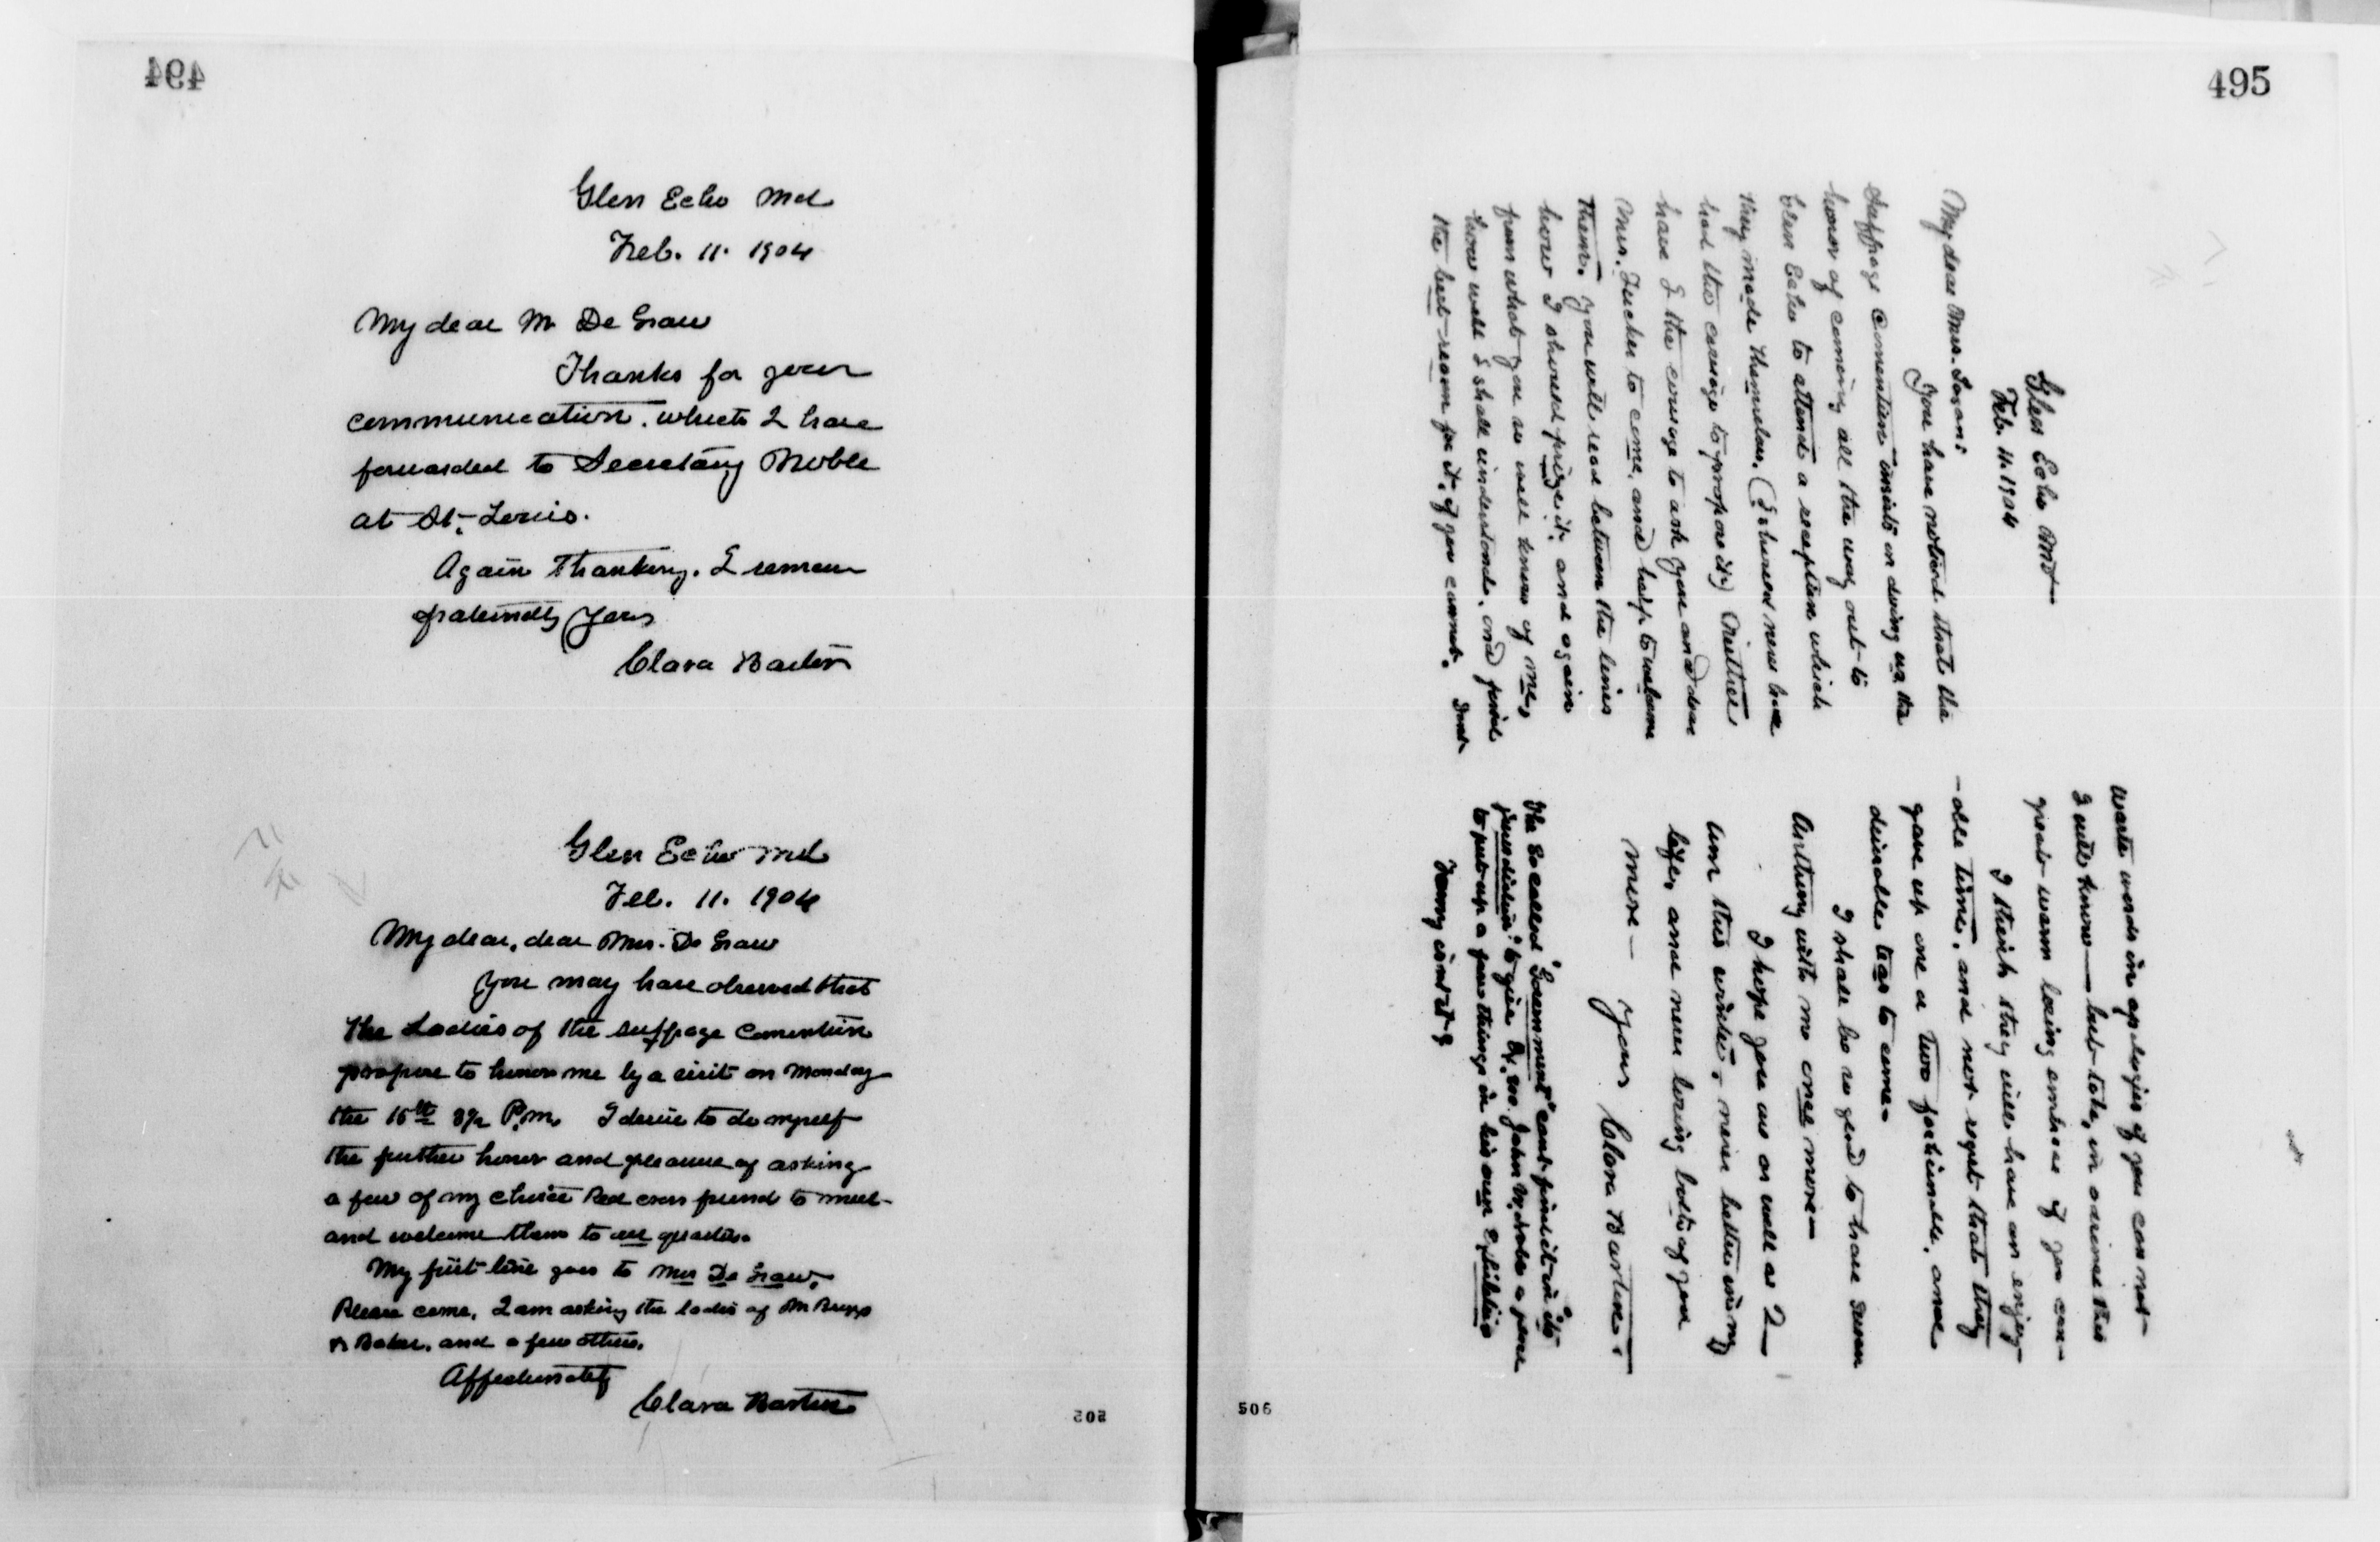 494
Glen Echo Md
Feb. 11. 1904
My dear Mr De Graw
Thanks for your
communication. which I have
forwarded to Secretary Noble
at St. Louis.
Again Thanking. I remain
fraternally Yours
Clara Barton
Glen Echo Md
Feb. 11. 1904
My dear, dear Mrs. De Graw
You may have observed that
the Ladies of the suffrage Convention
propose to honor me by a visit on Monday
the 15th 3½ P.m. I desire to do myself
the further honor and pleasure of asking
a few of my choice Red cross friend to meet
and welcome them to our quarters.
My first line goes to Mrs De Graw,
Please come, I am asking the ladies of Mr Briggs
& Baker, and a few others.
Affectionately
Clara Barton
505
495
Glen Echo Md
Feb. 11. 1904
My dear Mrs. Logan:
You have noticed that the
Suffrage Convention insists on doing us the
honor of coming all the way out to
Glen Echo to attend a reception which
they made themselves. (I should never have
had the courage to propose it) Neither
have I the courage to ask you and dear
Mrs. Tucker to come, and help to welcome
them. You will read between the lines
how I should prize it, and again
from what you so well know of me,
how well I shall understand, and find
the best reason for it, if you cannot. Dont
waste words in apologies if you can not
I will know — but take, in advance this
great warm loving embrace if you can
I think they will have an enjoy-
-able time, and not regret that they
gave up one or two fashionable, and
desirable teas to come.
I shall be so glad to have Susan
Anthony with me once more—
I hope you are as well as I
am this winter, never better in my
life, and never loving both of you
more— Yours Clara Barton.
The so called "Government" cant find it in its
"jurisdiction" to give Ex. Sec. John W. Noble a place
to put up a few things in his own Exhibition
Funny isn't it?
506